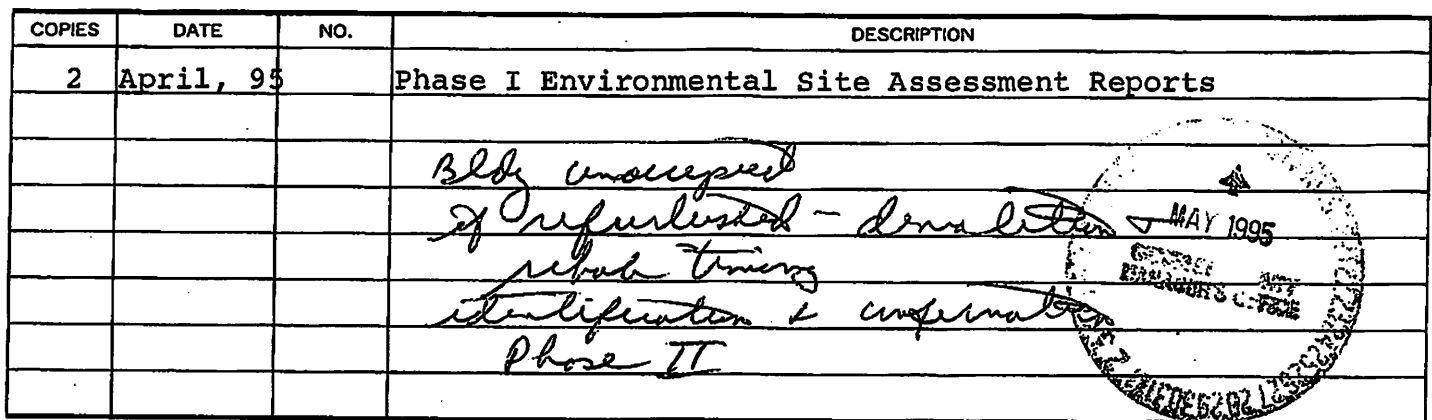 COPIES DATE NO. DESCRIPTION
2 April, 95 Phase I Environmental Site Assessment Reports
Bldg unoccupied
If refurbished - demolition &
rehab timing
identification & confirmation
Phase II
MAY 1995
MANAGER'S OFFICE